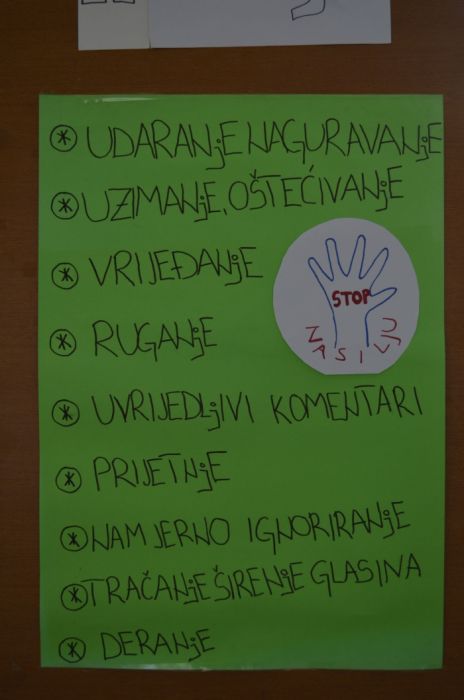 UDARANjE NAGURAVANjE
UZIMANjE, OŠTEĆIVANjE
VRIJEĐANjE
RUGANjE
STOP
NASILJU
UVRIJEDLjIVI KOMENTARI
PRIJETNjE
NAMJERNO IGNORIRANjE
TRAČANjE ŠIRENjE GLASINA
DERANjE